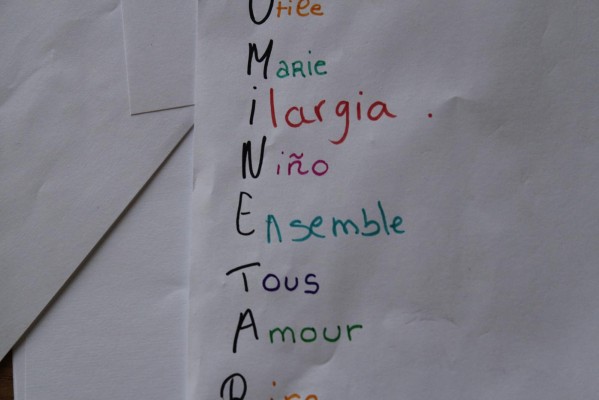 Utile
Marie
ilargia .
Niño
Ensemble
Tous
Amour